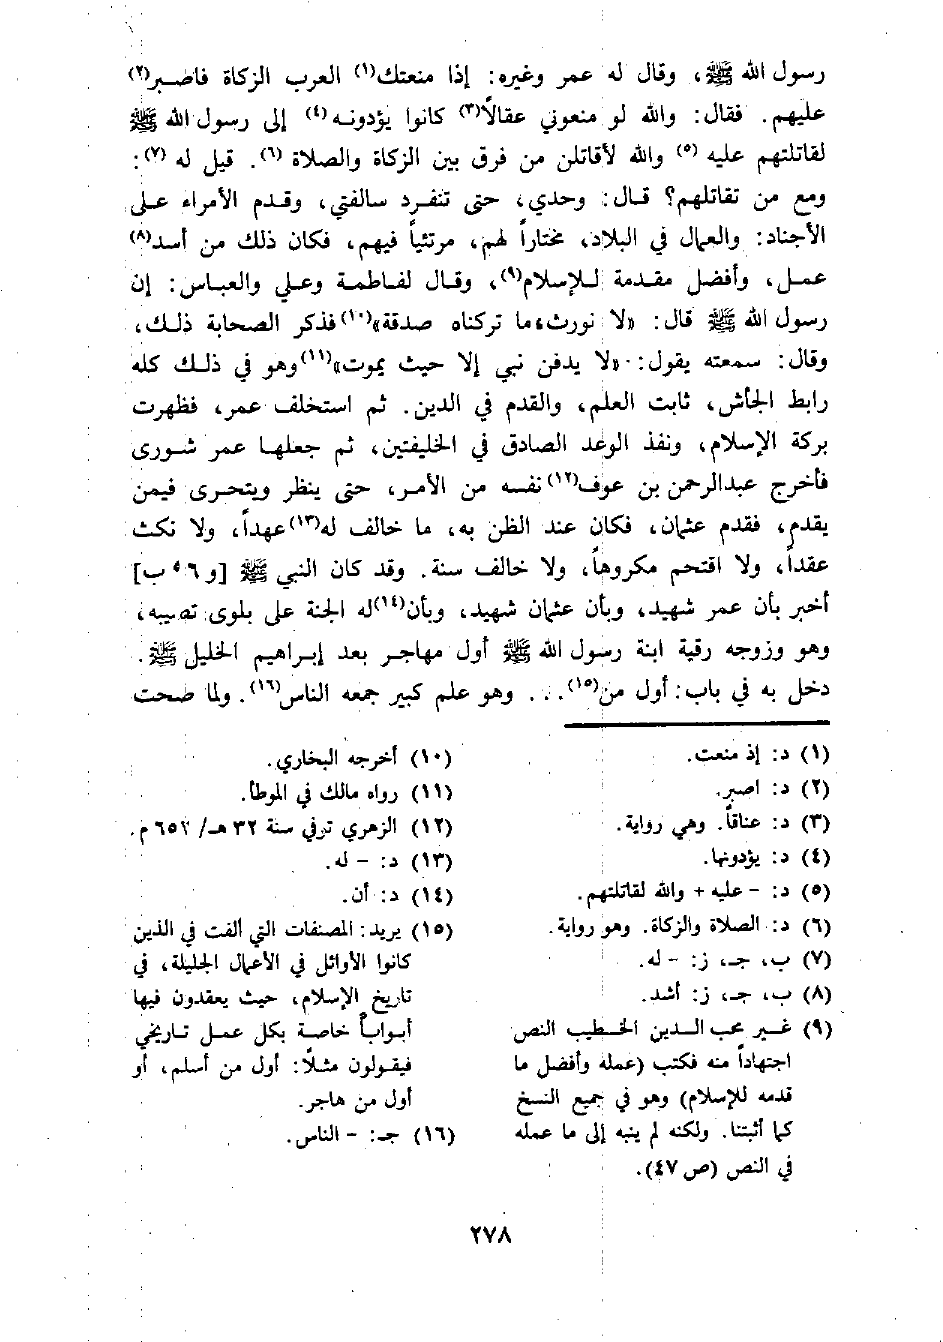 رسول الله ﷺ، وقال له عمر وغيره: إذا منعتك(١) العرب الزكاة فاصبر(٢)
عليهم. فقال: والله لو منعوني عقالاً(٣) كانوا يؤدونه(٤) إلى رسول الله ﷺ
لقاتلتهم عليه (٥) والله لأقاتلن من فرق بين الزكاة والصلاة (٦). قيل له (٧):
ومع من تقاتلهم؟ قال: وحدي، حتى تنفرد سالفتي، وقدم الأمراء على
الأجناد: والعمال في البلاد، مختاراً لهم، مرتئياً فيهم، فكان ذلك من أسد(٨)
عمل، وأفضل مقدمة للإسلام(٩)، وقال لفاطمة وعلي والعباس: إن
رسول الله ﷺ قال: «لا نورث، ما تركناه صدقة»(١٠) فذكر الصحابة ذلك،
وقال: سمعته يقول: «لا يدفن نبي إلا حيث يموت»(١١) وهو في ذلك كله
رابط الجأش، ثابت العلم، والقدم في الدين. ثم استخلف عمر، فظهرت
بركة الإسلام، ونفذ الوعد الصادق في الخليفتين، ثم جعلها عمر شورى
فأخرج عبدالرحمن بن عوف(١٢) نفسه من الأمر، حتى ينظر ويتحرى فيمن
يقدم، فقدم عثمان، فكان عند الظن به، ما خالف له(١٣) عهداً، ولا نكث
عقداً، ولا اقتحم مكروهاً، ولا خالف سنة. وقد كان النبي ﷺ [و ٥٦ ب]
أخبر بأن عمر شهيد، وبأن عثمان شهيد، وبأن(١٤) له الجنة على بلوى تصيبه،
وهو وزوجه رقية ابنة رسول الله ﷺ أول مهاجر بعد إبراهيم الخليل ﷺ.
دخل به في باب: أول من(١٥)... وهو علم كبير جمعه الناس(١٦). ولما صحت
(١) د: إذ منعت.
(٢) د: اصبر.
(٣) د: عناقاً. وهي رواية.
(٤) د: يؤدونها.
(٥) د: - عليه + والله لقاتلتهم.
(٦) د: الصلاة والزكاة. وهو رواية.
(٧) ب، جـ، ز: - له.
(٨) ب، جـ، ز: أشد.
(٩) غير محب الدين الخطيب النص
اجتهاداً منه فكتب (عمله وأفضل ما
قدمه للإسلام) وهو في جميع النسخ
كما أثبتنا. ولكنه لم ينبه إلى ما عمله
في النص (ص ٤٧).
(١٠) أخرجه البخاري.
(١١) رواه مالك في الموطأ.
(١٢) الزهري توفي سنة ٣٢ هـ/ ٦٥٢ م.
(١٣) د: - له.
(١٤) د: أن.
(١٥) يريد: المصنفات التي ألفت في الذين
كانوا الأوائل في الأعمال الجليلة، في
تاريخ الإسلام، حيث يعقدون فيها
أبواباً خاصة بكل عمل تاريخي
فيقولون مثلاً: أول من أسلم، أو
أول من هاجر.
(١٦) جـ: - الناس.
٢٧٨